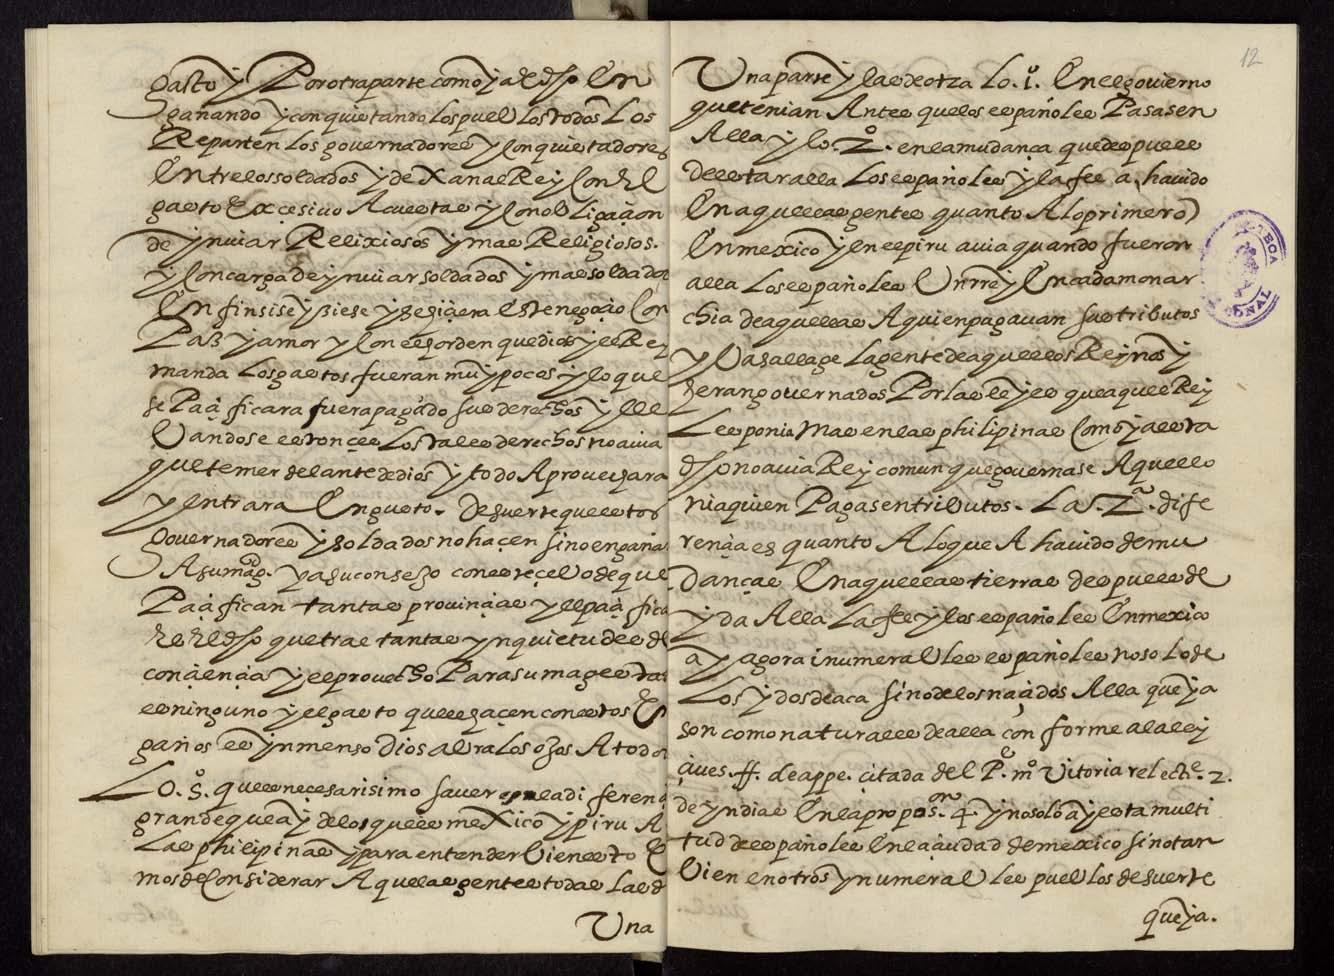 gasto y Por otra parte como ya e dho En
gañando y conquietando los pueblos todos Los
Reparten los governadores y Conquietadores
Entre los soldados y dexan al Rey Con El
gasto Excesivo A cuestas y Con obligaçion
de ynuiar Relixiosos y mas Religiosos.
y Con carga de ynuiar soldados y mas soldados
En fin si se ysiese y se siguiera Este negoçio Con
Paz y amor y Con el horden que dios y el Rey
manda Los gastos fueran muy pocos y lo que
se Paçificara fuera pagado sus derechos y lle
Vandose estonçes Los tales derechos no avia
que temer delante de dios y todo Aprouechara
y entrara En gusto. De suerte que estos
Governadores y soldados no haçen sino engañar
A su magd. y a su consejo con este çelo de que
Paçifican tantas provinçias y el paçifica
he dho que trae tantas ynquietudes de
conçiençia y el provecho Para su magestad
es ninguno y el gasto que le haçen con estos En
gaños es ynmenso Dios abra los ojos A todos
Lo. 8.º que es necesarisimo saver es la diferençia
grande que ay de los que es mexico y piru A
Las philipinas y para entender bien esto E
mos de Considerar Aquellas gentes todas Las de
Una
12
Una parte y las de otra Lo. 1.º En el govierno
que tenian Antes que los españoles Pasasen
Alla y lo. 2.º en la mudança que despues
de estar alla Los españoles y la fee a havido
En aquellas gentes quanto A lo primero
En mexico y en el piru avia quando fueron
alla Los españoles Un rrey En cada monar
chia de aquellas A quien pagavan sus tributos
y Vasallage la gente de aquellos Reynos y
heran governados Por las leyes que aquel Rey
Les ponia Mas en las philipinas Como ya esta
dho no avia Rey comun que governase Aquello
ni a quien Pagasen tributos. La S. 2.ª dife
rençia es quanto A lo que A havido de mu
danças En aquellas tierras despues de
yda Alla La fee y los españoles En mexico
ay agora inumerables españoles no solo de
Los ydos de aca sino de los naçidos Alla que ya
son como naturales de alla con forme a la ley
çiues. ff. de appe. çitada del P.e m.o Vitoria relecte. 2.
de yndias En la propos.on 4. y no solo ay esta multi
tud de españoles En la çiudad de mexico si no tan
bien en otros ynumerables pueblos de suerte
que ya.